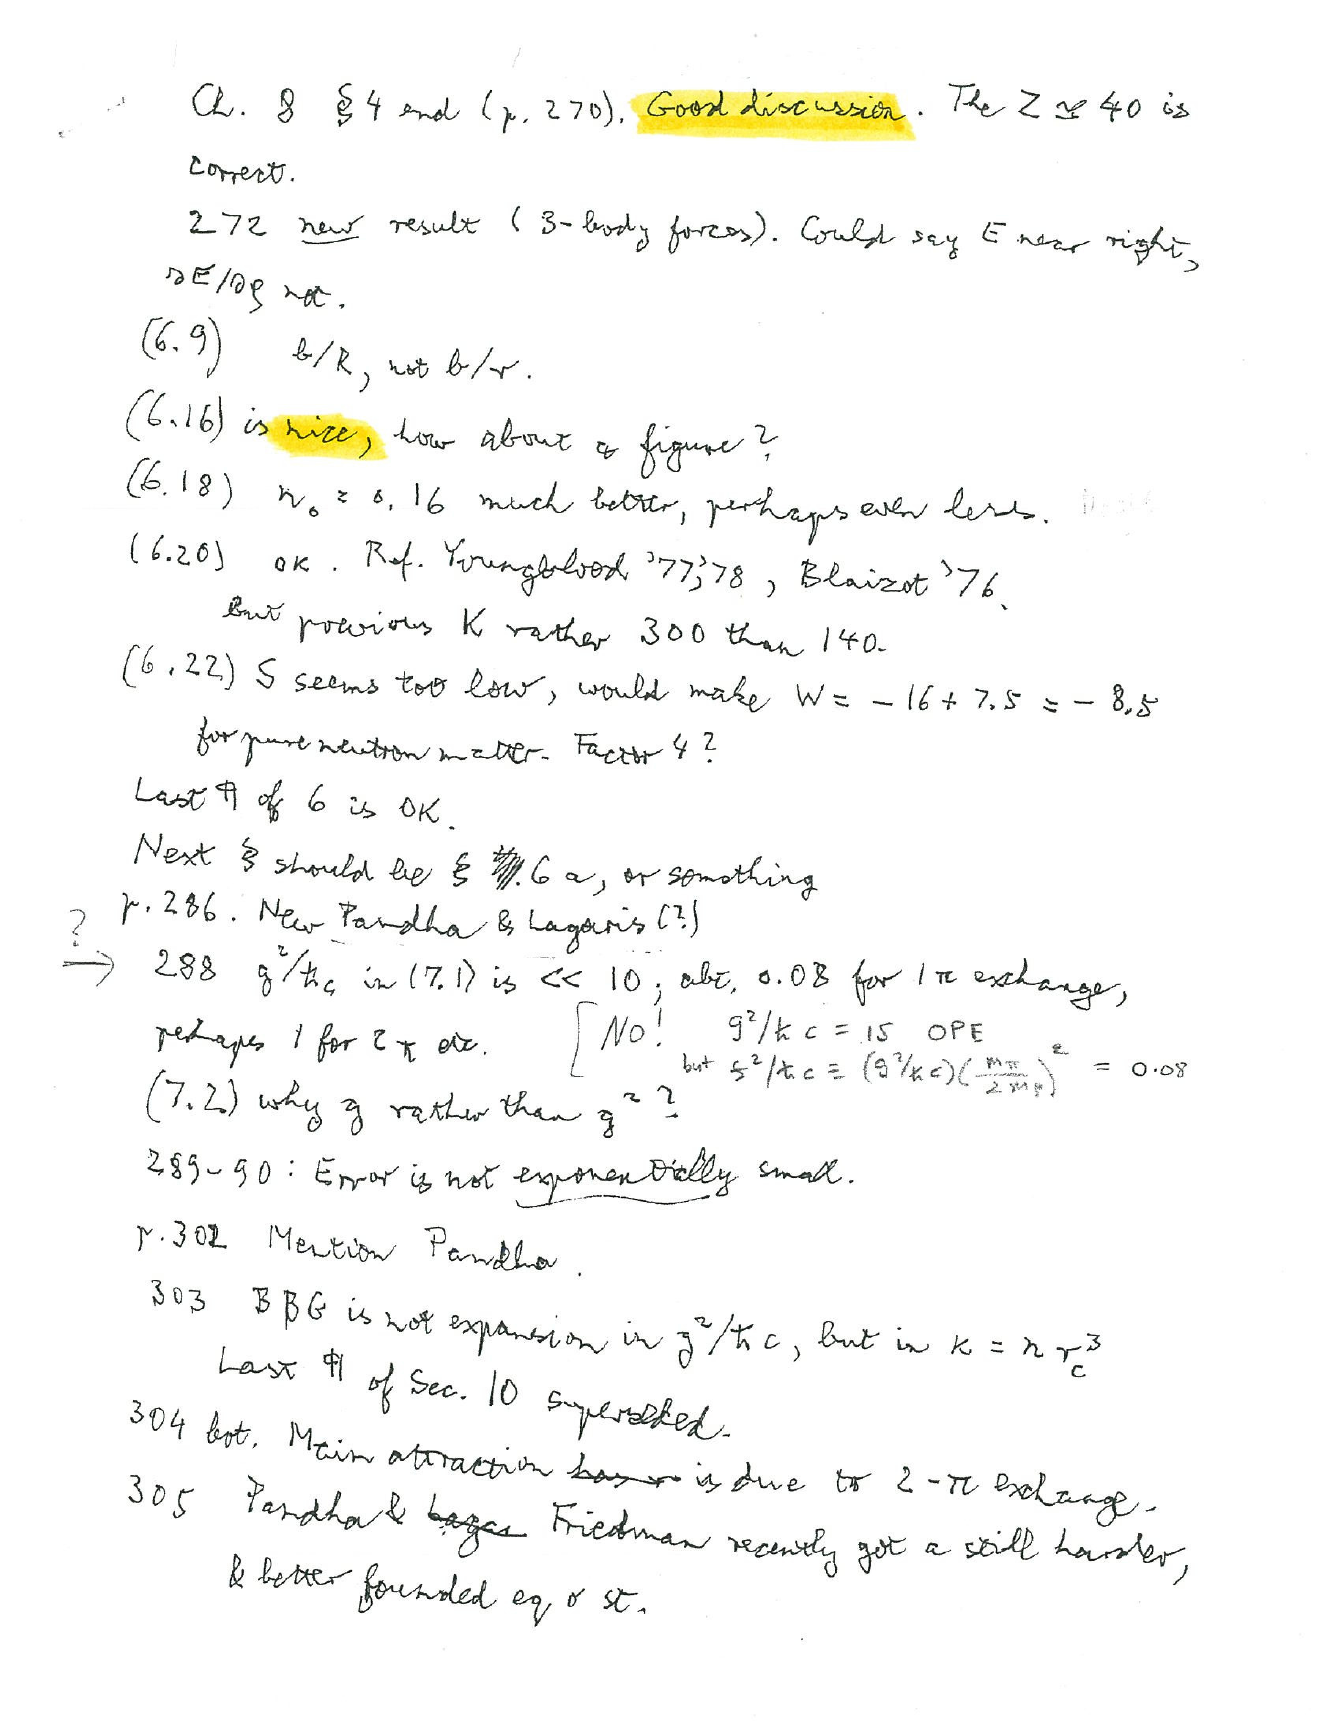 Ch. 8 § 4 end (p. 270). Good discussion. The Z ≃ 40 is
correct.
272 new result (3-body forces). Could say E near right,
∂E/∂ρ not.
(6.9) b/R, not b/r.
(6.16) is nice, how about a figure?
(6.18) n₀ = 0.16 much better, perhaps even less.
(6.20) OK. Ref. Youngblood '77,'78, Blaizot '76.
But previous K rather 300 than 140.
(6.22) S seems too low, would make W = - 16 + 7.5 = - 8.5
for pure neutron matter. Factor 4?
Last ¶ of 6 is OK.
Next § should be § 6a, or something
p. 286. New Pandha & Lagaris (?)
?
→ 288 g²/ħc in (7.1) is << 10; abt. 0.08 for 1π exchange,
perhaps 1 for 2π etc. [NO! g²/ħc = 15 OPE
but f²/ħc ≡ (g²/ħc)(mπ/2mₙ)² = 0.08
(7.2) why g rather than g²?
289-90: Error is not exponentially small.
p. 302 Mention Pandha.
303 BBG is not expansion in g²/ħc, but in κ = n r_c³
Last ¶ of Sec. 10 superseded.
304 bot. Main attraction is due to 2-π exchange.
305 Pandha & Friedman recently got a still harder,
& better founded eq o st.